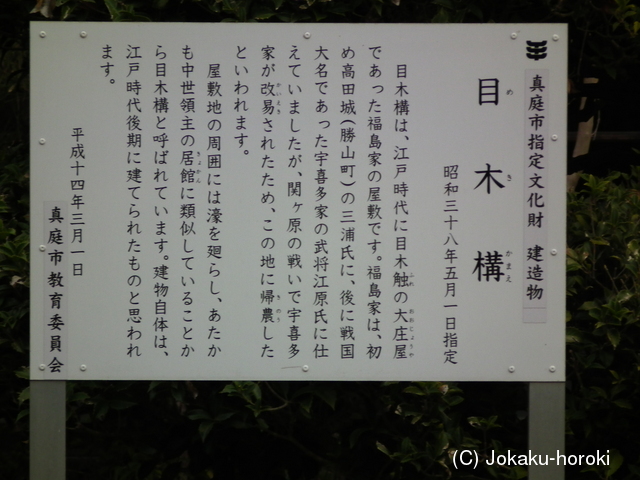 真庭市指定文化財　建造物
目木構
めきかまえ
昭和三十八年五月一日指定
目木構は、江戸時代に目木触の大庄屋
であった福島家の屋敷です。福島家は、初
め高田城(勝山町)の三浦氏に、後に戦国
大名であった宇喜多家の武将江原氏に仕
えていましたが、関ヶ原の戦いで宇喜多
家が改易されたため、この地に帰農した
といわれます。
屋敷地の周囲には濠を廻らし、あたか
も中世領主の居館に類似していることか
ら目木構と呼ばれています。建物自体は、
江戸時代後期に建てられたものと思われ
ます。
平成十四年三月一日
真庭市教育委員会
(C) Jokaku-horoki